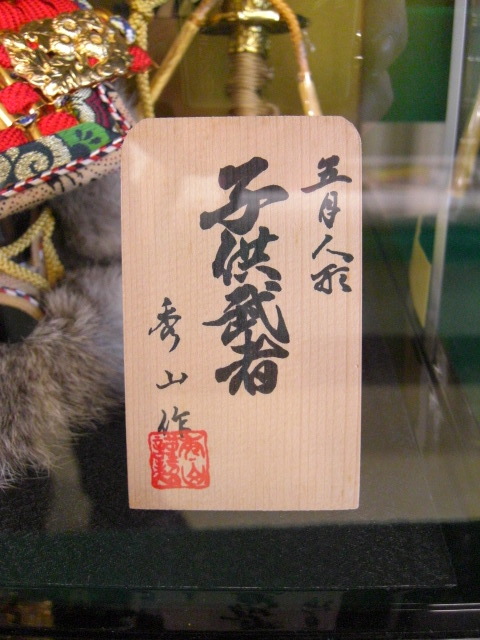 五月人形
子供武者
秀山作